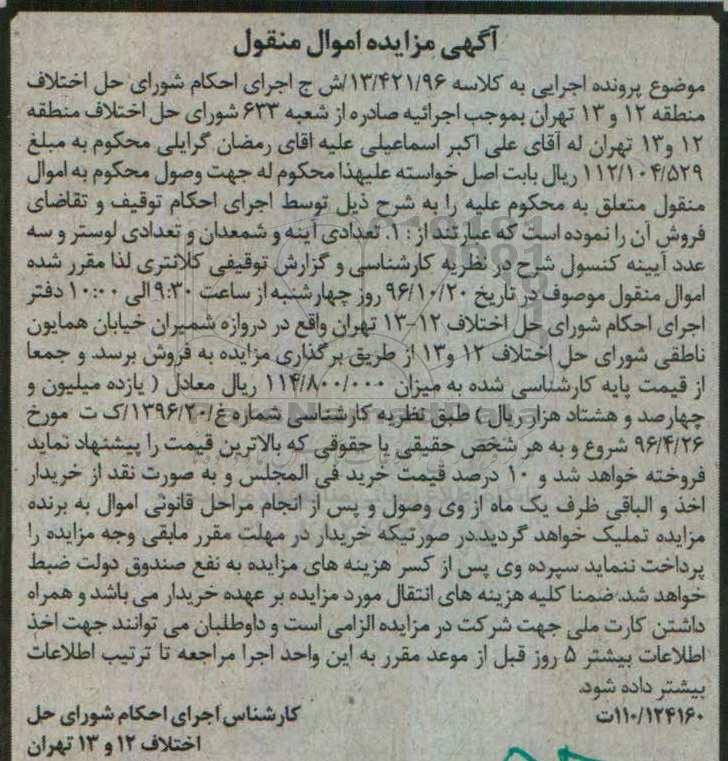 آگهی مزایده اموال منقول
موضوع پرونده اجرایی به کلاسه ۱۳/۴۲۱/۹۶/ش ج اجرای احکام شورای حل اختلاف
منطقه ۱۲ و ۱۳ تهران بموجب اجرائیه صادره از شعبه ۶۳۳ شورای حل اختلاف منطقه
۱۲ و۱۳ تهران له آقای علی اکبر اسماعیلی علیه اقای رمضان گرایلی محکوم به مبلغ
۱۱۲/۱۰۴/۵۲۹ ریال بابت اصل خواسته علیهذا محکوم له جهت وصول محکوم به اموال
منقول متعلق به محکوم علیه را به شرح ذیل توسط اجرای احکام توقیف و تقاضای
فروش آن را نموده است که عبارتند از : ۱. تعدادی آینه و شمعدان و تعدادی لوستر و سه
عدد آیینه کنسول شرح در نظریه کارشناسی و گزارش توقیفی کلانتری لذا مقرر شده
اموال منقول موصوف در تاریخ ۹۶/۱۰/۲۰ روز چهارشنبه از ساعت ۹:۳۰ الی ۱۰:۰۰ دفتر
اجرای احکام شورای حل اختلاف ۱۲-۱۳ تهران واقع در دروازه شمیران خیابان همایون
ناطقی شورای حل اختلاف ۱۲ و۱۳ از طریق برگذاری مزایده به فروش برسد. و جمعا
از قیمت پایه کارشناسی شده به میزان ۱۱۴/۸۰۰/۰۰۰ ریال معادل ( یازده میلیون و
چهارصد و هشتاد هزار ریال ) طبق نظریه کارشناسی شماره غ/۱۳۹۶/۲۰/ک ت مورخ
۹۶/۴/۲۶ شروع و به هر شخص حقیقی یا حقوقی که بالاترین قیمت را پیشنهاد نماید
فروخته خواهد شد و ۱۰ درصد قیمت خرید فی المجلس و به صورت نقد از خریدار
اخذ و الباقی ظرف یک ماه از وی وصول و پس از انجام مراحل قانونی اموال به برنده
مزایده تملیک خواهد گردید.در صورتیکه خریدار در مهلت مقرر مابقی وجه مزایده را
پرداخت ننماید سپرده وی پس از کسر هزینه های مزایده به نفع صندوق دولت ضبط
خواهد شد. ضمنا کلیه هزینه های انتقال مورد مزایده بر عهده خریدار می باشد و همراه
داشتن کارت ملی جهت شرکت در مزایده الزامی است و داوطلبان می توانند جهت اخذ
اطلاعات بیشتر ۵ روز قبل از موعد مقرر به این واحد اجرا مراجعه تا ترتیب اطلاعات
بیشتر داده شود.
۱۱۰/۱۲۴۱۶۰ت
کارشناس اجرای احکام شورای حل
اختلاف ۱۲ و ۱۳ تهران